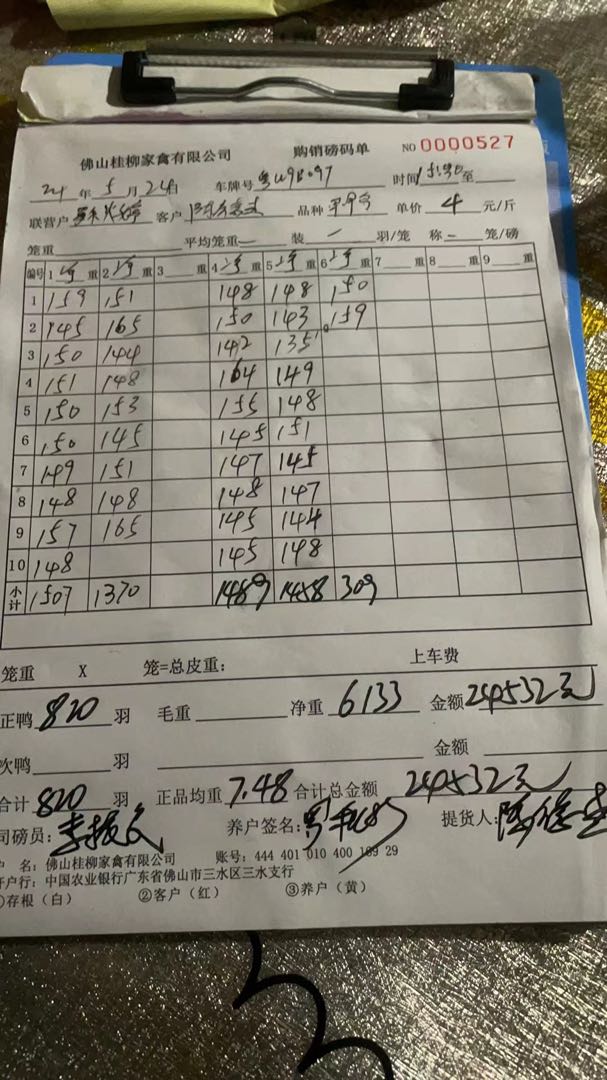 佛山桂柳家禽有限公司 购销磅码单 NO 0000527
24年5月24日 车牌号 时间15:30至
联营户 客户 品种 单价 4 元/斤
笼重 平均笼重 一 装 一 羽/笼 称 一 笼/磅
编号 1 重 2 重 3 重 4 重 5 重 6 重 7 重 8 重 9 重
1 159 151 148 148 150
2 145 165 150 143 159
3 150 144 142 135
4 151 148 164 149
5 150 153 155 148
6 150 145 145 151
7 149 151 147 145
8 148 148 148 147
9 157 165 145 144
10 148 145 148
小计 1507 1370 1489 1458 309
笼重 X 笼=总皮重: 上车费
正鸭 820 羽 毛重 净重 6133 金额 24532元
次鸭 羽 金额
合计 820 羽 正品均重 7.48 合计总金额 24532元
司磅员: 养户签名: 提货人:
户 名: 佛山桂柳家禽有限公司 账号: 444 401 010 400 169 29
开户行: 中国农业银行广东省佛山市三水区三水支行
①存根(白) ②客户(红) ③养户(黄)